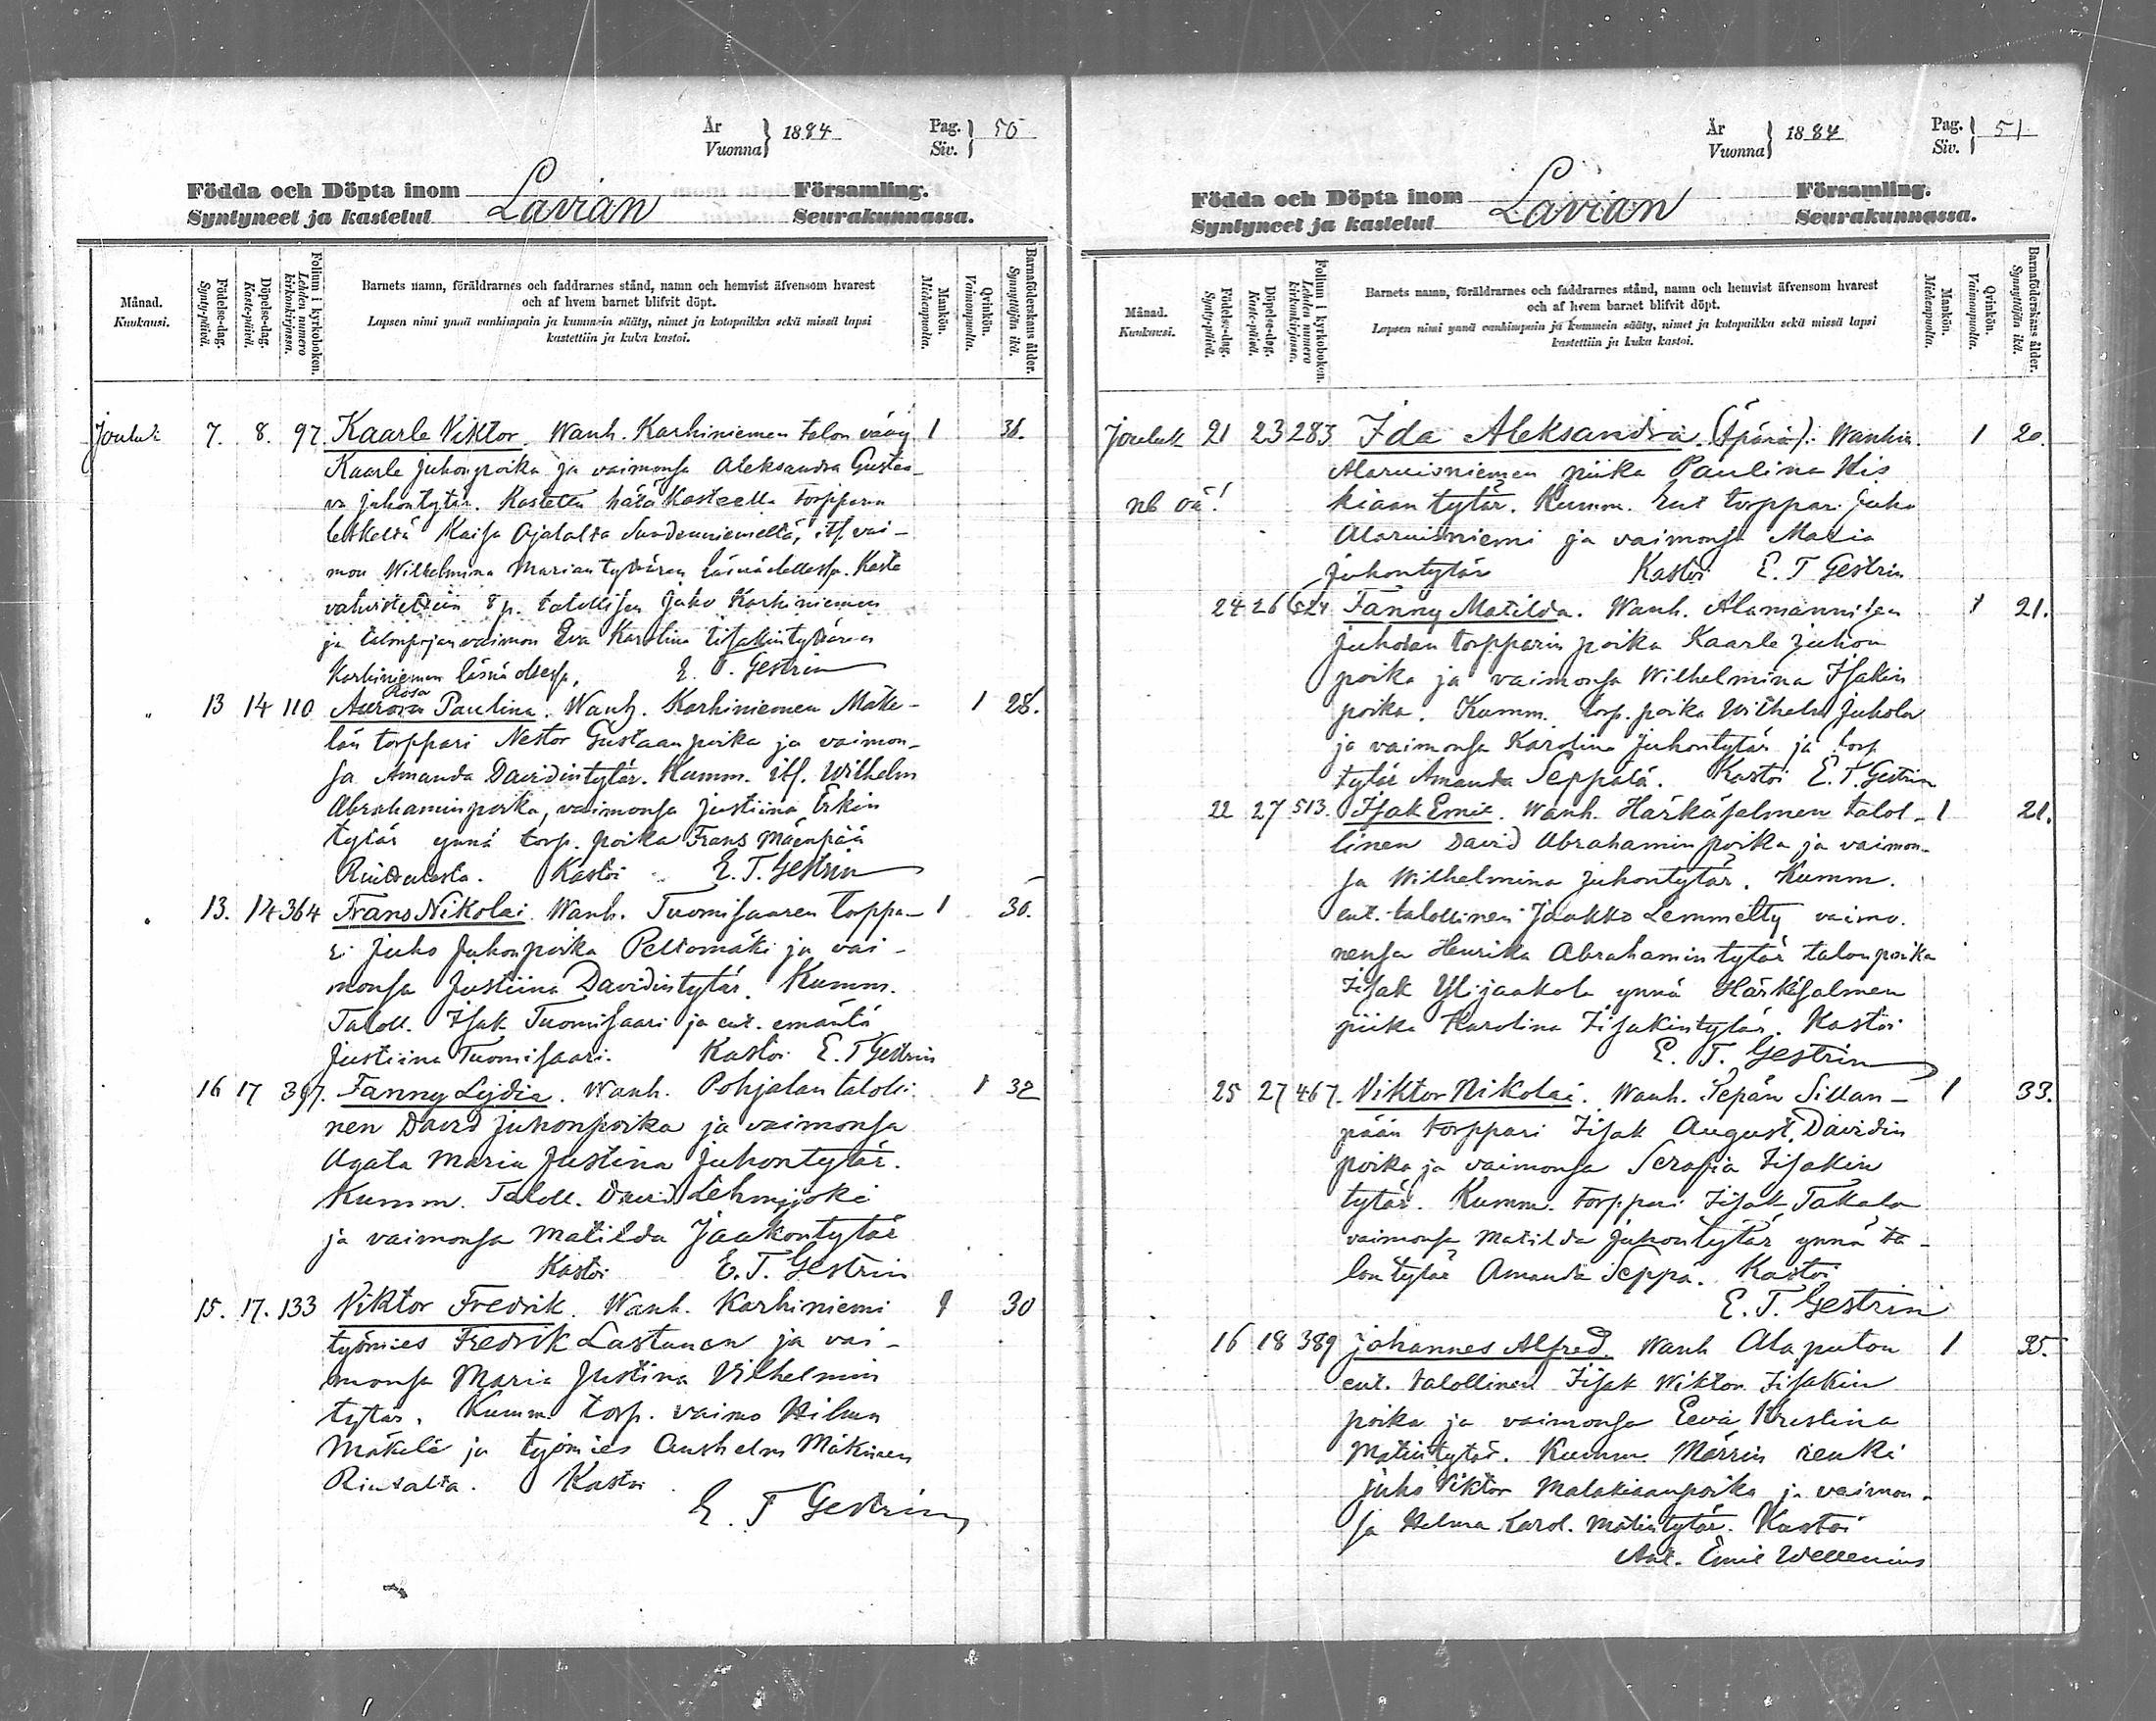 År
Vuonna } 1884
Pag.
Siv. } 50
Födda och Döpta inom Lavian Församling.
Syntyneet ja kastetut Seurakunnassa.
Månad.
Kuukausi.
Födelse-dag.
Synty-päivä.
Döpelse-dag.
Kaste-päivä.
Folium i kyrkoboken.
Lehden numero
kirkonkirjassa.
Barnets namn, föräldrarnes och faddrarnes stånd, namn och hemvist äfvensom hvarest
och af hvem barnet blifvit döpt.
Lapsen nimi ynnä vanhimpain ja kummein sääty, nimet ja kotopaikka sekä missä lapsi
kastettiin ja kuka kastoi.
Mankön.
Miehenpuolta.
Qvinkön.
Vaimonpuolta.
Barnaföderskans ålder.
Synnyttäjän ikä.
Jouluk 7. 8. 97 Kaarle Viktor. Wanh. Karhiniemen talon vävy 1 36.
Kaarle Juhonpoika ja vaimonsa Aleksandra Gusta-
va Juhontytär. Kastettu hätäkasteella torpparin
leskeltä Kaisa Ojalalta Suodenniemeltä, its. vai-
mon Wilhelmina Mariantyttären läsnäollessa. Kaste
vahvistettiin 8 p. talollisen Juho Karhiniemen
ja talonpojan vaimon Eva Karolina Iisakintyttären
Karhiniemen läsnäollessa. E. T. Gestrin
Rosa
" 13 14 110 Aurora Paulina. Wanh. Karhiniemen Mäke- 1 28.
län torppari Nestor Gustaanpoika ja vaimon-
sa Amanda Davidintytär. Kumm. itl. Wilhelm
Abrahaminpoika, vaimonsa Justiina Erkin
tytär ynnä torp. poika Frans Mäenpää
Kastoi E. T. Gestrin
" 13. 14 364 Frans Nikolai. Wanh. Tuomisaaren torppa- 1 30.
ri Juho Juhonpoika Peltomäki ja vai-
monsa Justiina Davidintytär. Kumm.
Taloll. Isak Tuomisaari ja ent. emäntä
Justiina Tuomisaari. Kastoi E. T Gestrin
16 17 397. Fanny Lydia. Wanh. Pohjalan taloli- 1 32
nen David Juhonpoika ja vaimonsa
Agata Maria Justina Juhontytär.
Kumm. Taloll. David Lehmijoki
ja vaimonsa Matilda Jaakontytär
Kastoi E. T. Gestrin
15. 17. 133 Viktor Fredrik. Wanh. Karhiniemi 1 30
työmies Fredrik Lastunen ja vai-
monsa Maria Justina Vilhelmin
tytär. Kumm. torp. vaimo Hilma
Mäkelä ja työmies Anshelm Mäkinen
Rintalta. Kastoi
E. T Gestrin
År
Vuonna } 1884
Pag.
Siv. } 51
Födda och Döpta inom Lavian Församling.
Syntyneet ja kastetut Seurakunnassa.
Månad.
Kuukausi.
Födelse-dag.
Synty-päivä.
Döpelse-dag.
Kaste-päivä.
Folium i kyrkoboken.
Lehden numero
kirkonkirjassa.
Barnets namn, föräldrarnes och faddrarnes stånd, namn och hemvist äfvensom hvarest
och af hvem barnet blifvit döpt.
Lapsen nimi ynnä vanhimpain ja kummein sääty, nimet ja kotopaikka sekä missä lapsi
kastettiin ja kuka kastoi.
Mankön.
Miehenpuolta.
Qvinkön.
Vaimonpuolta.
Barnaföderskans ålder.
Synnyttäjän ikä.
Jouluk 21 23 283 Ida Aleksandra. (Äpärä). Wanhin. 1 20.
piika Paulina His
nb kiaan tytär. Kumm. Ent torppari Juho
ja vaimonsa Maria
Juhontytär Kastoi E. T Gestrin
24 26 624 Fanny Matilda. Wanh. Alamannisen 1 21.
Juholan torpparin poika Kaarle Juhon
poika ja vaimonsa Wilhelmina Isakin
poika. Kumm. torp. poika Wilhelm Juhola
ja vaimonsa Karolina Juhontytär ja torp
tytär Amanda Seppälä. Kastoi E. T. Gestrin
22 27 513. Isak Emil. Wanh. Härkäsalmen talol- 1 21.
linen David Abrahamin poika ja vaimon-
sa Wilhelmina Juhontytär. Kumm.
ent. talollinen Jaakko Lemmetty vaimo.
nensa Henrika Abrahamintytär talonpoika
Iisak Ylijaakola ynnä Härkäsalmen
piika Karolina Iisakintytär. Kastoi
E. T. Gestrin
25 27 467. Viktor Nikolai. Wanh. Sepän Sillan- 1 33.
pään torppari Iisak August Davidin
poika ja vaimonsa Serafia Iisakin
tytär. Kumm. torppari Iisak Takala
vaimonsa Matilda Juhontytär ynnä ta-
lon tytär Amanda Seppä. Kastoi
E. T. Gestrin
16 18 389 Johannes Alfred. Wanh Alaputon 1 35.
ent. talollinen Iisak Wiktor Iisakin
poika ja vaimonsa Eeva Kristina
Matintytär. Kumm. Märrin renki
Juho Viktor Malakiaanpoika ja vaimon-
sa Helma Karol. Matintytär. Kastoi
Ant. Emil Wellenius